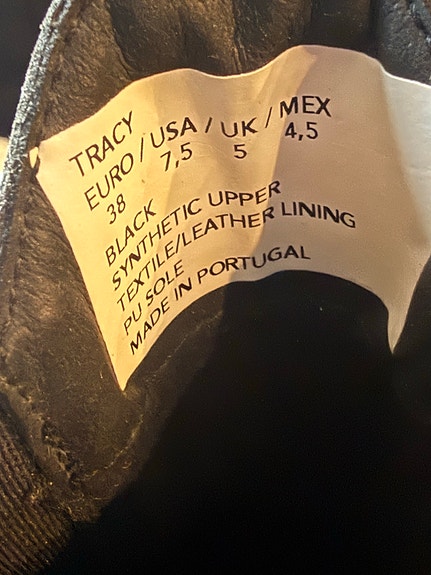 TRACY
EURO / USA / UK / MEX
38 7,5 5 4,5
BLACK
SYNTHETIC UPPER
TEXTILE/LEATHER LINING
PU SOLE
MADE IN PORTUGAL